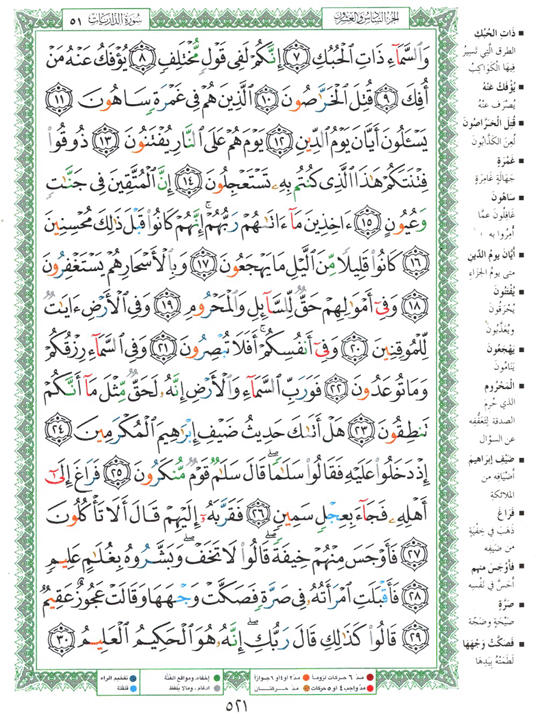 الجزء السادس والعشرون
سورة الذاريات ٥١
وَالسَّمَاءِ ذَاتِ الْحُبُكِ ٧ إِنَّكُمْ لَفِي قَوْلٍ مُّخْتَلِفٍ ٨ يُؤْفَكُ عَنْهُ مَنْ
أُفِكَ ٩ قُتِلَ الْخَرَّاصُونَ ١٠ الَّذِينَ هُمْ فِي غَمْرَةٍ سَاهُونَ ١١
يَسْـَٔلُونَ أَيَّانَ يَوْمُ الدِّينِ ١٢ يَوْمَ هُمْ عَلَى النَّارِ يُفْتَنُونَ ١٣ ذُوقُوا
فِتْنَتَكُمْ هَٰذَا الَّذِي كُنتُم بِهِ تَسْتَعْجِلُونَ ١٤ إِنَّ الْمُتَّقِينَ فِي جَنَّٰتٍ
وَعُيُونٍ ١٥ ءَاخِذِينَ مَا ءَاتَىٰهُمْ رَبُّهُمْ إِنَّهُمْ كَانُوا قَبْلَ ذَٰلِكَ مُحْسِنِينَ
١٦ كَانُوا قَلِيلًا مِّنَ اللَّيْلِ مَا يَهْجَعُونَ ١٧ وَبِالْأَسْحَارِ هُمْ يَسْتَغْفِرُونَ
١٨ وَفِي أَمْوَٰلِهِمْ حَقٌّ لِّلسَّائِلِ وَالْمَحْرُومِ ١٩ وَفِي الْأَرْضِ ءَايَٰتٌ
لِّلْمُوقِنِينَ ٢٠ وَفِي أَنفُسِكُمْ أَفَلَا تُبْصِرُونَ ٢١ وَفِي السَّمَاءِ رِزْقُكُمْ
وَمَا تُوعَدُونَ ٢٢ فَوَرَبِّ السَّمَاءِ وَالْأَرْضِ إِنَّهُ لَحَقٌّ مِّثْلَ مَا أَنَّكُمْ
تَنطِقُونَ ٢٣ هَلْ أَتَىٰكَ حَدِيثُ ضَيْفِ إِبْرَٰهِيمَ الْمُكْرَمِينَ ٢٤
إِذْ دَخَلُوا عَلَيْهِ فَقَالُوا سَلَٰمًا قَالَ سَلَٰمٌ قَوْمٌ مُّنكَرُونَ ٢٥ فَرَاغَ إِلَىٰ
أَهْلِهِ فَجَاءَ بِعِجْلٍ سَمِينٍ ٢٦ فَقَرَّبَهُ إِلَيْهِمْ قَالَ أَلَا تَأْكُلُونَ
٢٧ فَأَوْجَسَ مِنْهُمْ خِيفَةً قَالُوا لَا تَخَفْ وَبَشَّرُوهُ بِغُلَٰمٍ عَلِيمٍ
٢٨ فَأَقْبَلَتِ امْرَأَتُهُ فِي صَرَّةٍ فَصَكَّتْ وَجْهَهَا وَقَالَتْ عَجُوزٌ عَقِيمٌ
٢٩ قَالُوا كَذَٰلِكِ قَالَ رَبُّكِ إِنَّهُ هُوَ الْحَكِيمُ الْعَلِيمُ ٣٠
ذَاتِ الْحُبُكِ
الطرق الّتي تسيرُ
فيها الكواكبُ
يُؤْفَكُ عَنْهُ
يُصرَف عنهُ
قُتِلَ الخَرّاصُونَ
لُعِنَ الكذّابُونَ
غَمْرَةٍ
جَهَالةٍ غامِرَةٍ
سَاهُونَ
غافِلُونَ عمّا
أُمِرُوا به
أيّانَ يومُ الدّين
متى يومُ الجزاء
يُفْتَنُونَ
يُحْرَقُونَ
ويُعذَّبُونَ
يَهْجَعُونَ
يَنَامُونَ
المَحْرُومِ
الذي حُرِمَ
الصدقةَ لِتَعَفُّفِهِ
عن السؤال
ضَيْفِ إبراهيمَ
أضيافِه من
الملائكة
فَرَاغَ
ذهَبَ في خِفْيَةٍ
من ضيفِه
فأوْجَسَ منهم
أحَسَّ في نفْسِهِ
صَرَّةٍ
صَيْحَةٍ وضَجّة
فَصَكّتْ وَجْهَهَا
لطَمَتْهُ بيدها
مدّ ٦ حركات لزوماً
مدّ ٢ أو ٤ أو ٦ جوازاً
إخفاء، ومواقع الغُنّة
تفخيم الراء
مدّ واجب ٤ أو ٥ حركات
مدّ حركتان
ادغام، وما لا يُلفظ
قلقلة
٥٢١